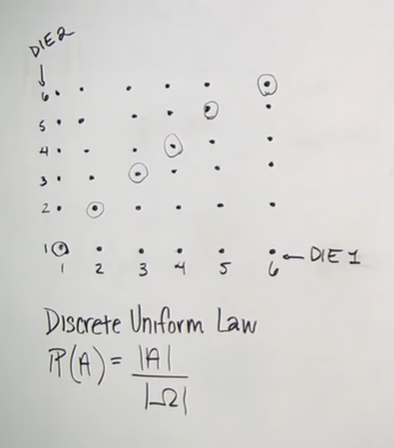 DIE 2
6
5
4
3
2
1
1 2 3 4 5 6 ← DIE 1
Discrete Uniform Law
P(A) = |A|
|Ω|